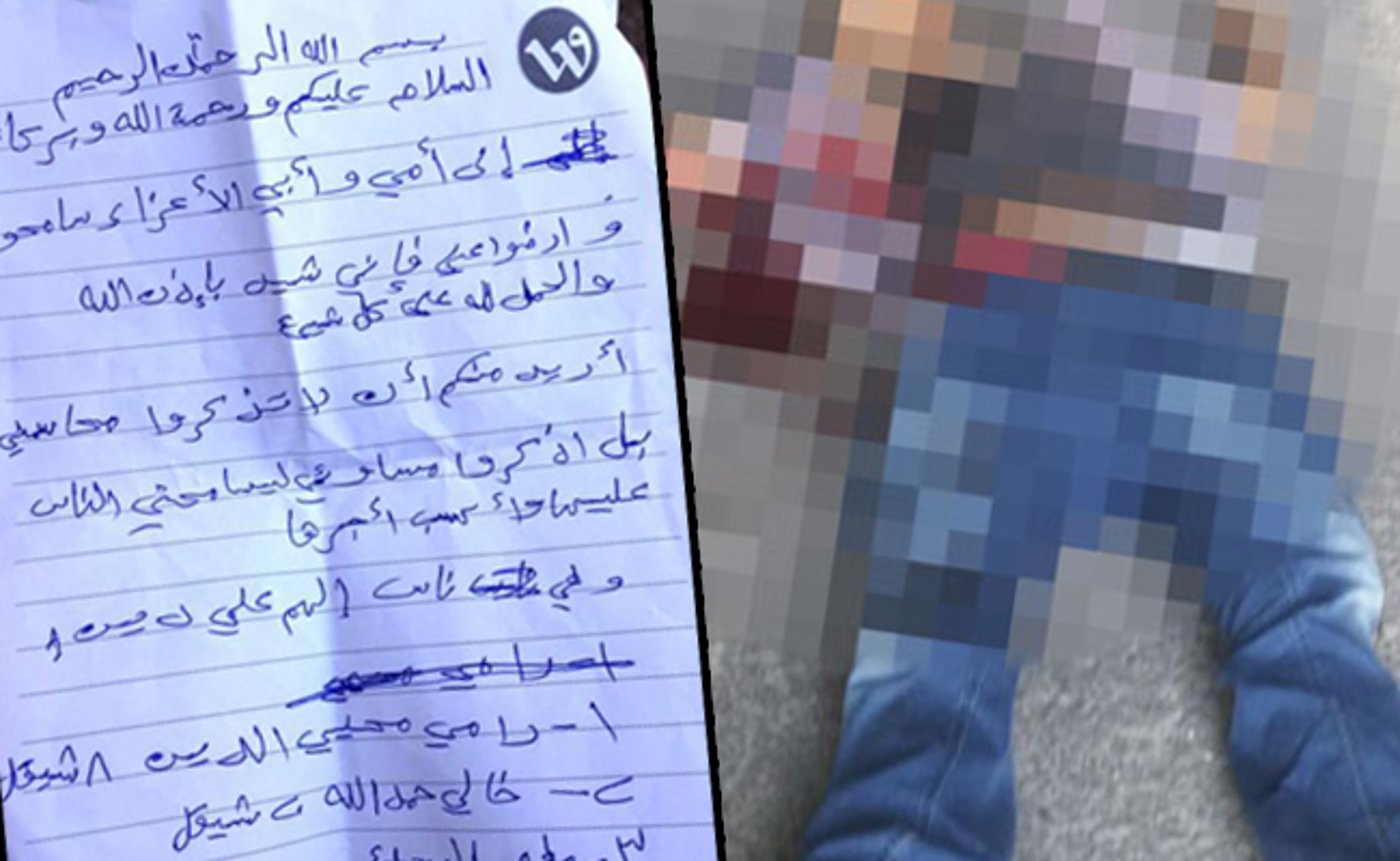 بسم الله الرحمن الرحيم
السلام عليكم ورحمة الله وبركا
إلى أمي وأبي الأعزاء سامحو
وارضوا عني فإني شهيد بإذن الله
والحمد لله على كل شيء
أريد منكم أن لا تذكروا محاسني
بل اذكروا مساوئي ليسامحني الناس
عليها وأكسب أجرها
وفي ناس إلهم علي دين
١- رامي محيي الدين ٨ شيقل
٢- خالي حمد الله ٢ شيقل
٣-